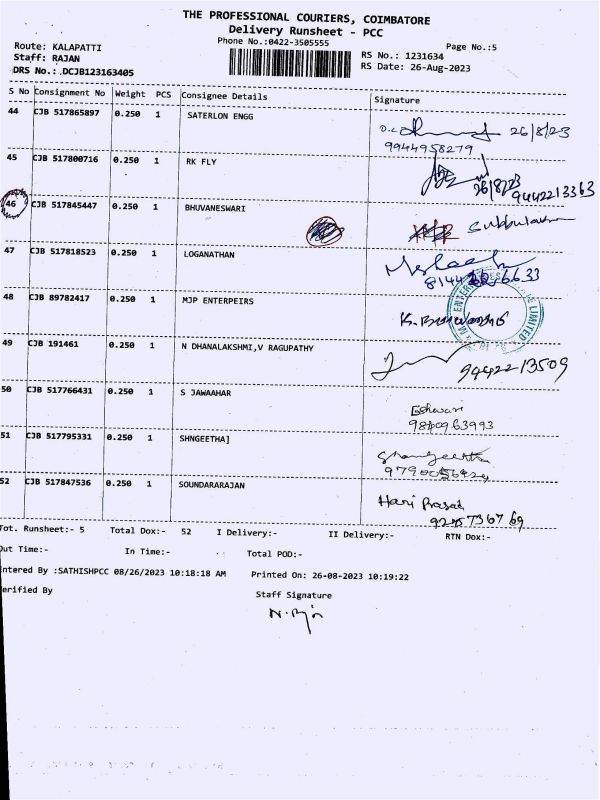 THE PROFESSIONAL COURIERS, COIMBATORE
Delivery Runsheet - PCC
Phone No.:0422-3505555
Page No.:5
Route: KALAPATTI
Staff: RAJAN
DRS No.: DCJB123163405
RS No.: 1231634
RS Date: 26-Aug-2023
S No Consignment No Weight PCS Consignee Details Signature
44 CJB 517865897 0.250 1 SATERLON ENGG
26/8/23
9944958279
45 CJB 517800716 0.250 1 RK FLY
26/8/23
9442213363
46 CJB 517845447 0.250 1 BHUVANESWARI
47 CJB 517818523 0.250 1 LOGANATHAN
48 CJB 89782417 1 0.250 1 MJP ENTERPEIRS
49 CJB 191461 0.250 1 N DHANALAKSHMI,V RAGUPATHY
94422-13509
50 CJB 517766431 0.250 1 S JAWAAHAR
Eshwari
51 CJB 517795331 0.250 1 SHNGEETHA]
52 CJB 517847536 0.250 1 SOUNDARARAJAN
Hari Prasad
Tot. Runsheet:- 5 Total Dox:- 52 I Delivery:- II Delivery:- RTN Dox:-
Out Time:- In Time:- Total POD:-
Entered By :SATHISHPCC 08/26/2023 10:18:18 AM Printed On: 26-08-2023 10:19:22
Verified By Staff Signature